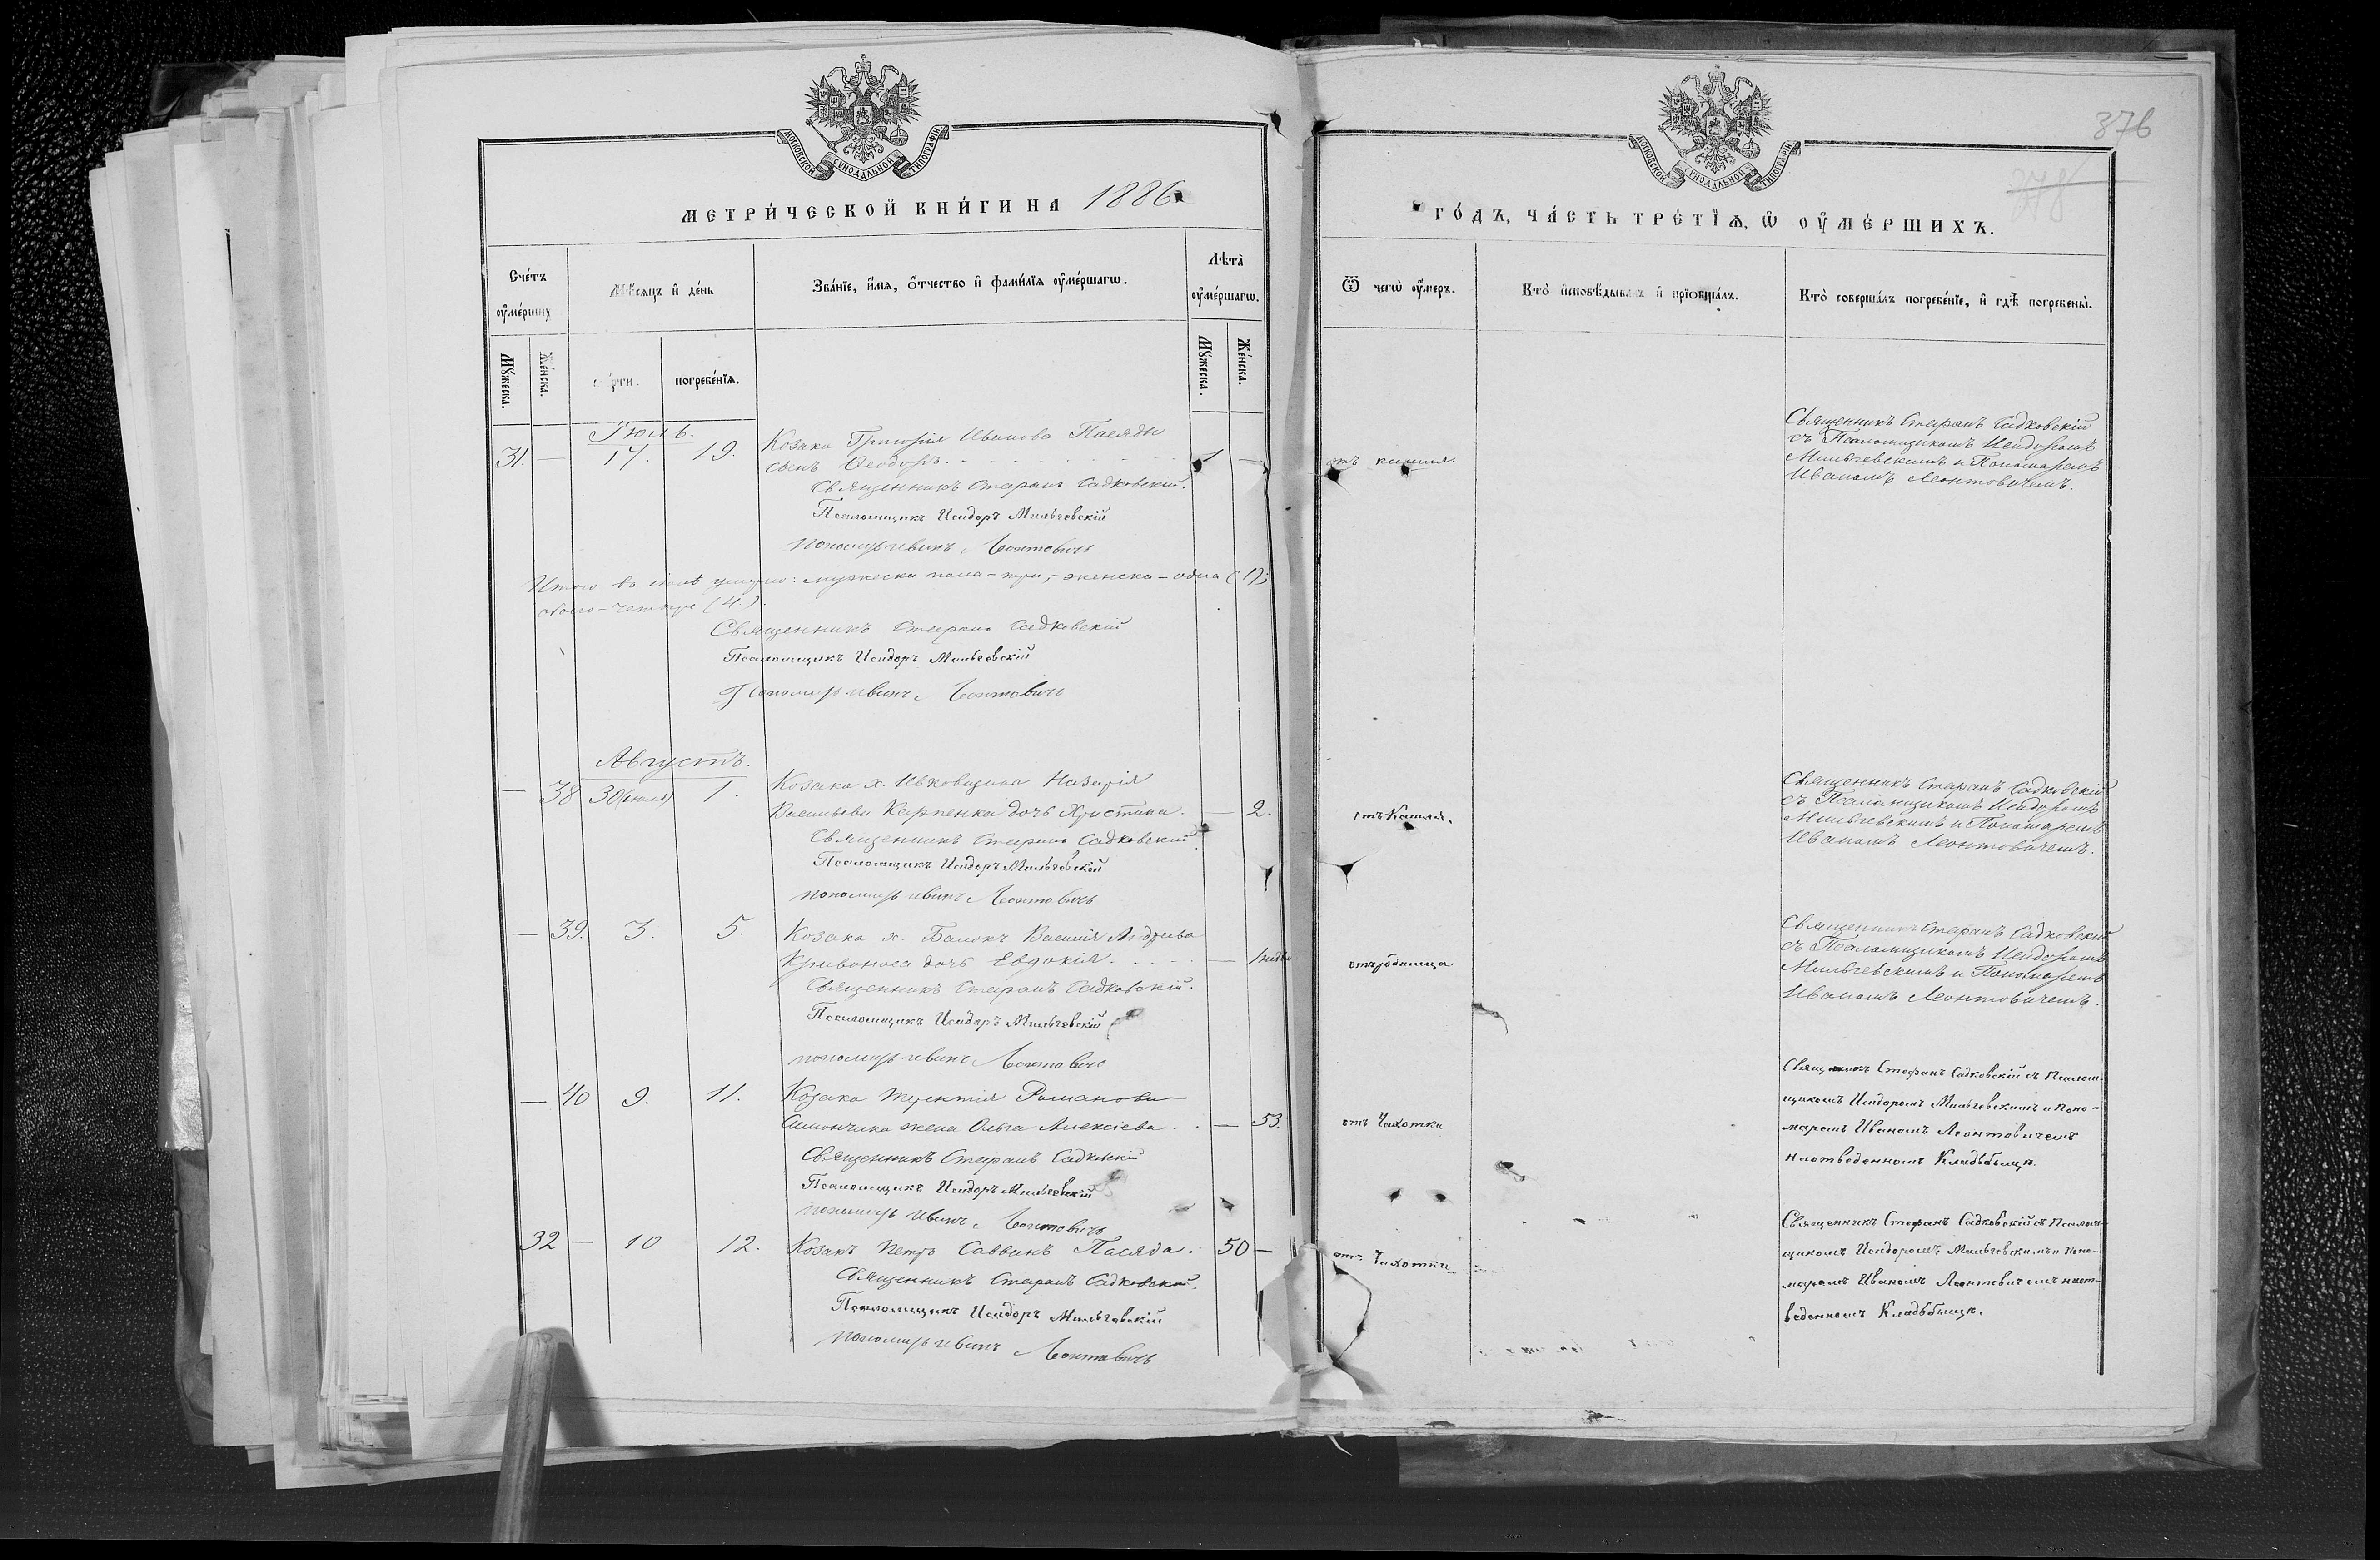 МОСКОВСКОЙ СѴНОДАЛЬНОЙ ТИПОГРАФІИ
МЕТРИ́ЧЕСКОЙ КНИ́ГИ НА 1886
Сче́тъ ᲂу҆ме́ршихъ
Мѣ́сяцъ и҆ де́нь
Зва́нїе, и҆́мя, ѻ҆́тчество и҆ фами́лїя ᲂу҆ме́ршагѡ.
Лѣта̀ ᲂу҆ме́ршагѡ.
Мꙋ́жеска.
Же́нска.
сме́рти.
погребе́нїѧ.
Мꙋ́жеска.
Же́нска.
Іюль.
31. — 17. 19. Козака Григорія Иванова Пасяды
сынъ Ѳеодоръ. 1 —
Священникъ Стефанъ Садковскій.
Псаломщикъ Исидоръ Мильчевскій
пономарь Иванъ Леонтовичъ
Итого въ іюлѣ умерло: мужеска пола – три, – женска – одна (1);
обоего – четыре (4.).
Священникъ Стефанъ Садковскій
Псаломщикъ Исидоръ Мильчевскій
Пономарь Иванъ Леонтовичъ
Августъ.
— 38 30 (іюля) 1. Козака х. Ивковщина Назарія
Васильева Карпенка дочь Христина. — 2.
Священникъ Стефанъ Садковскій
Псаломщикъ Исидоръ Мильчевскій
пономарь Иванъ Леонтовичъ
— 39. 3. 5. Козака х. Василія Андреева
Кривоноса дочь Евдокія. —
Священникъ Стефанъ Садковскій.
Псаломщикъ Исидоръ Мильчевскій
пономарь Иванъ Леонтовичъ
— 40 9. 11. Козака Терентія Романова
жена Ольга Алексіева. — 53.
Священникъ Стефанъ Садковскій
Псаломщикъ Исидоръ Мильчевскій
пономарь Иванъ Леонтовичъ
32 — 10 12. Козакъ Петръ Саввинъ Пасяда. 50 —
Священникъ Стефанъ Садковскій.
Псаломщикъ Исидоръ Мильчевскій
пономарь Иванъ Леонтовичъ
376
378
МОСКОВСКОЙ СѴНОДАЛЬНОЙ ТИПОГРАФІИ
ГО́ДЪ, ЧА́СТЬ ТРЕ́ТЇѦ, Ѡ҆ ОУ҆МЕ́РШИХЪ.
Ѿ чегѡ̀ ᲂу҆́меръ.
Кто̀ и҆сповѣ́дывалъ и҆ прїѻбща́лъ.
Кто̀ соверша́лъ погребе́нїе, и҆ гдѣ̀ погребены̀.
отъ кашля.
Священникъ Стефанъ Садковскій
съ Псаломщикомъ Исидоромъ
Мильчевскимъ и Пономаремъ
Иваномъ Леонтовичемъ.
отъ Кашля.
Священникъ Стефанъ Садковскій
съ Псаломщикомъ Исидоромъ
Мильчевскимъ и Пономаремъ
Иваномъ Леонтовичемъ.
отъ родимца
Священникъ Стефанъ Садковскій
съ Псаломщикомъ Исидоромъ
Мильчевскимъ и Пономаремъ
Иваномъ Леонтовичемъ.
отъ Чахотки
Священникъ Стефанъ Садковскій съ Псалом-
щикомъ Исидоромъ Мильчевскимъ и Поно-
маремъ Иваномъ Леонтовичемъ
на отведенномъ Кладьбыщѣ.
отъ Чахотки
Священникъ Стефанъ Садковскій съ Псалом-
щикомъ Исидоромъ Мильчевскимъ и Поно-
маремъ Иваномъ Леонтовичемъ на от-
веденномъ Кладьбыщѣ.